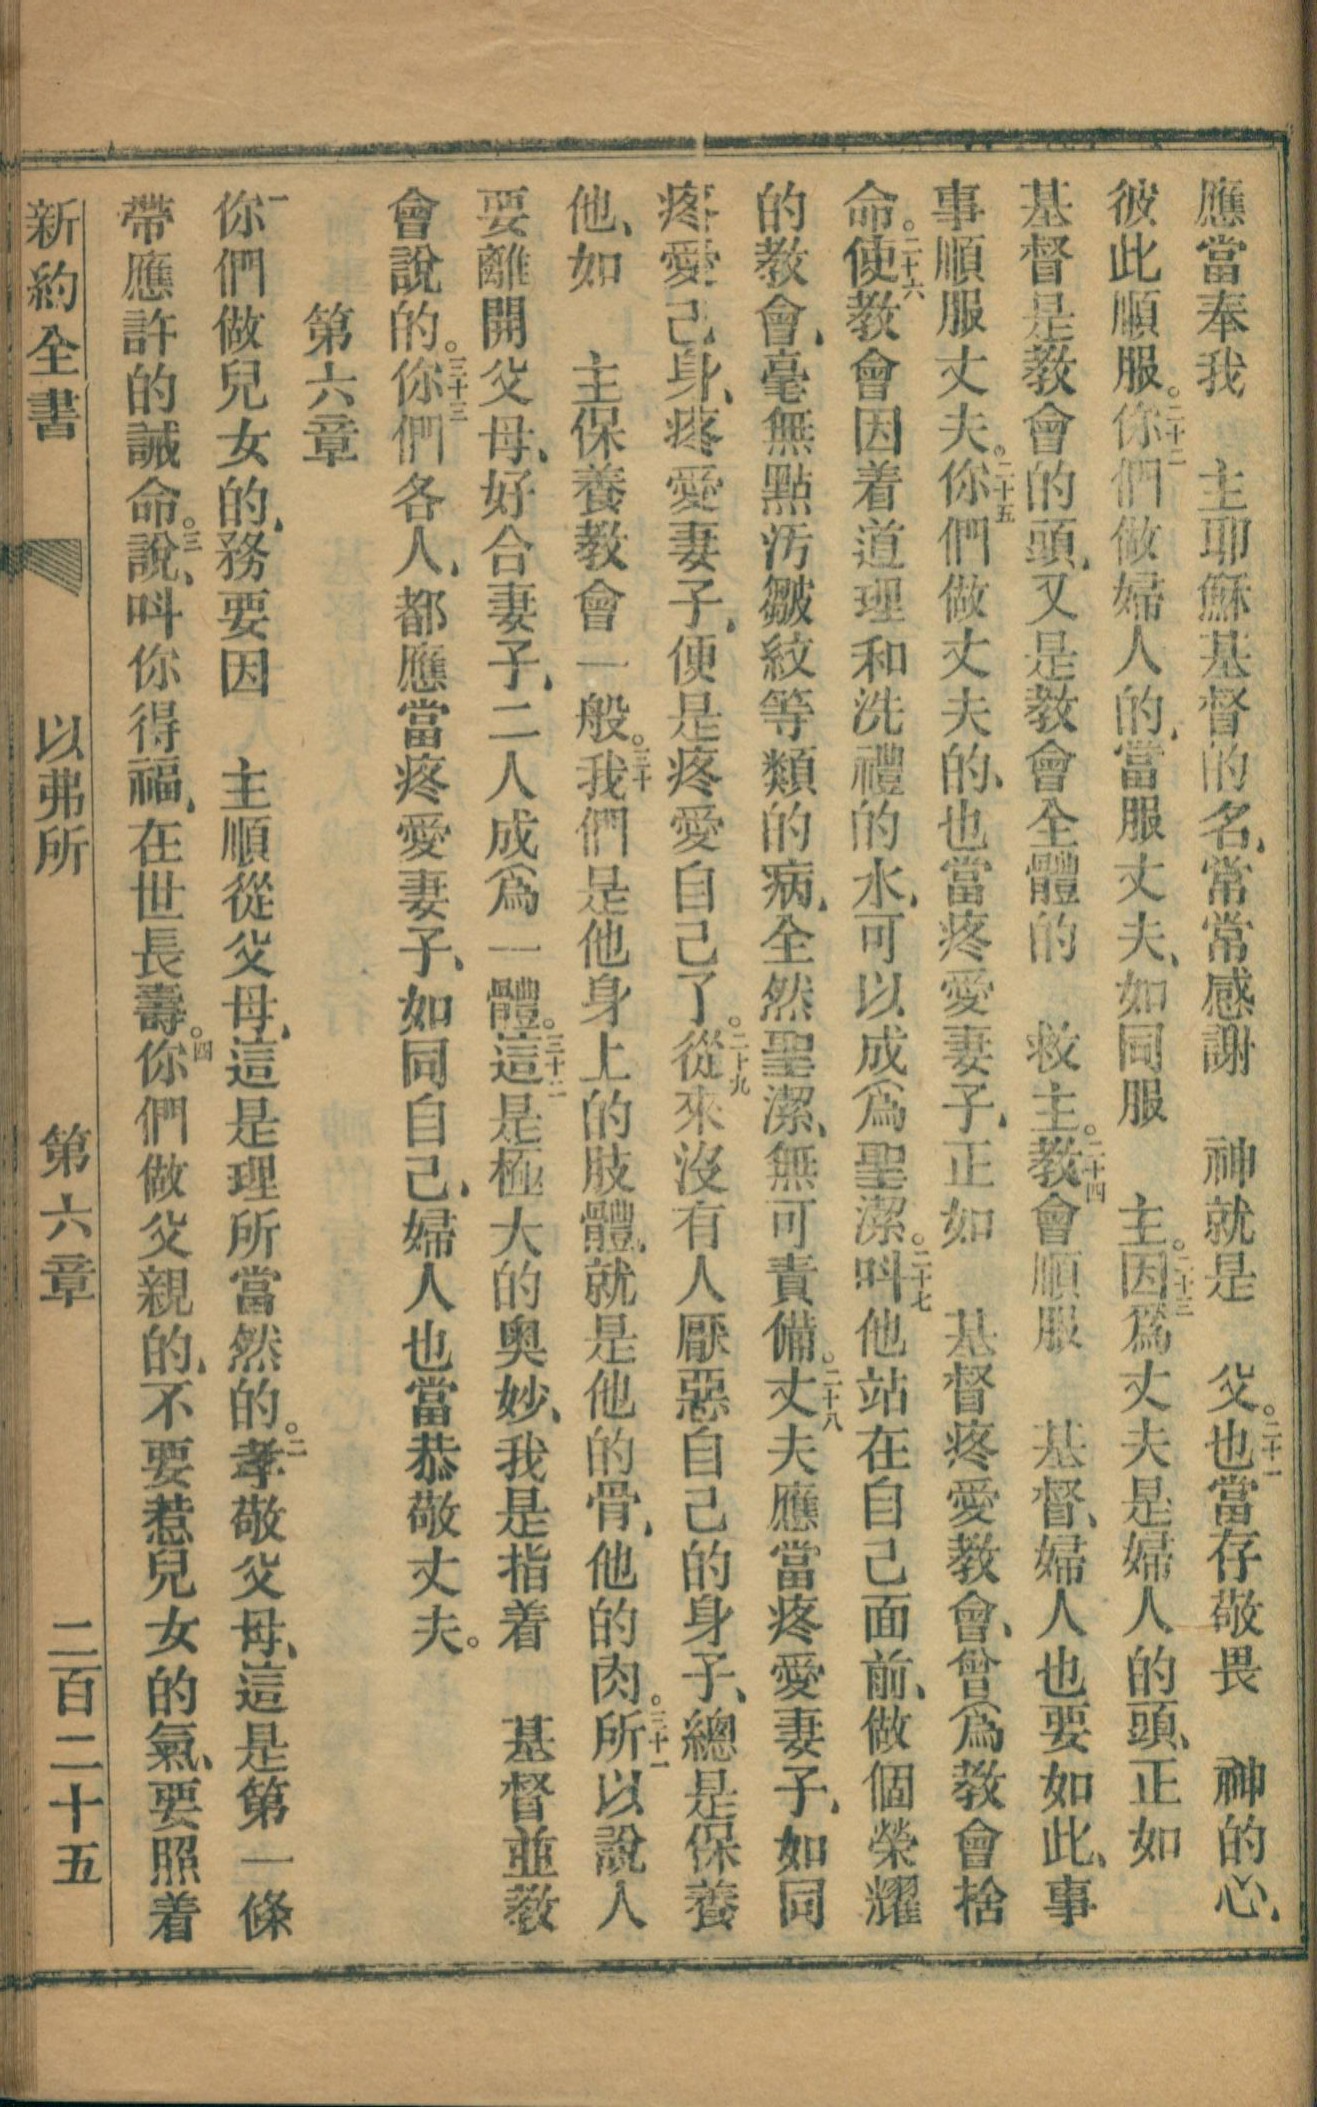 應當奉我　主耶穌基督的名、常常感謝　神就是　父。二十一也當存敬畏　神的心、
彼此順服。二十二你們做婦人的、當服丈夫、如同服　主。二十三因爲丈夫是婦人的頭、正如
基督是教會的頭、又是教會全體的　救主。二十四教會順服　基督、婦人也要如此、事
事順服丈夫。二十五你們做丈夫的、也當疼愛妻子、正如　基督疼愛教會、曾爲教會捨
命。二十六使教會因着道理和洗禮的水、可以成爲聖潔。二十七呌他站在自己面前、做個榮耀
的教會、毫無點汚皺紋等類的病、全然聖潔、無可責備。二十八丈夫應當疼愛妻子、如同
疼愛己身、疼愛妻子、便是疼愛自己了。二十九從來沒有人厭惡自己的身子、總是保養
他、如　主保養教會一般。三十我們是他身上的肢體、就是他的骨、他的肉。三十一所以說人
要離開父母、好合妻子、二人成爲一體。三十二這是極大的奥妙、我是指着　基督並教
會說的。三十三你們各人、都應當疼愛妻子、如同自己、婦人也當恭敬丈夫。
第六章
一你們做兒女的、務要因　主順從父母、這是理所當然的。二孝敬父母、這是第一條
帶應許的誡命。三說、呌你得福、在世長壽。四你們做父親的、不要惹兒女的氣、要照着
新約全書　以弗所　第六章　二百二十五